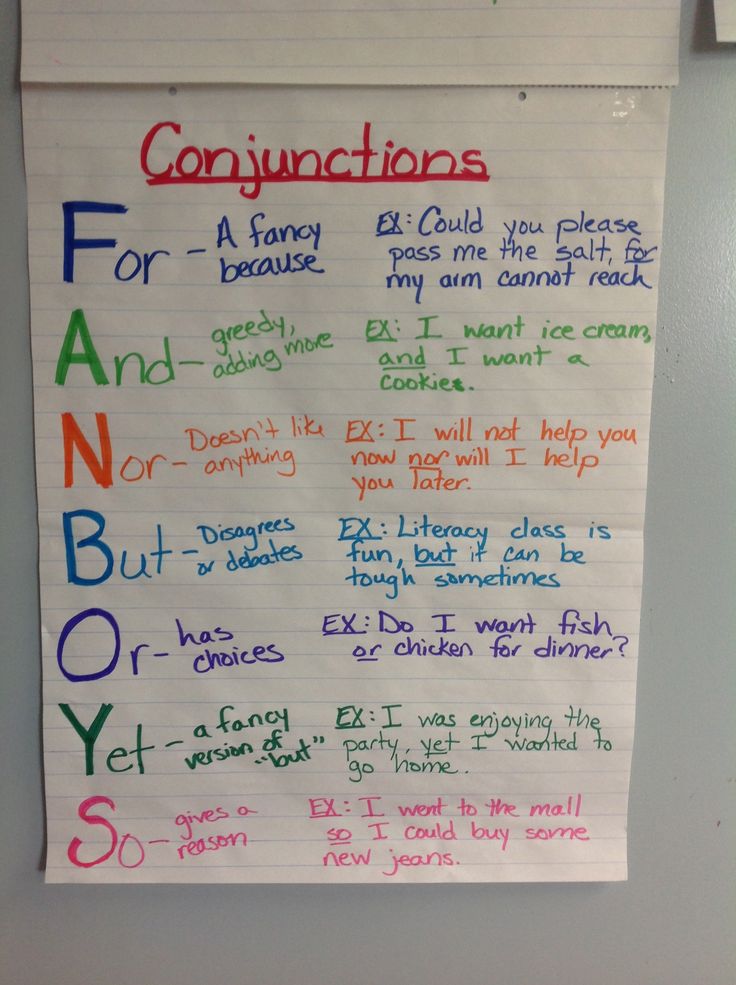 Conjunctions
For - A fancy
because
EX: Could you please
pass me the salt, for
my arm cannot reach
And - greedy,
adding more
EX: I want ice cream,
and I want a
cookie.
Nor - Doesn't like
anything
EX: I will not help you
now nor will I help
you later.
But - Disagrees
or debates
EX: Literacy class is
fun, but it can be
tough sometimes
Or - has
choices
EX: Do I want fish
or chicken for dinner?
Yet - a fancy
version of
"but"
EX: I was enjoying the
party, yet I wanted to
go home.
So - gives a
reason
EX: I went to the mall
so I could buy some
new jeans.